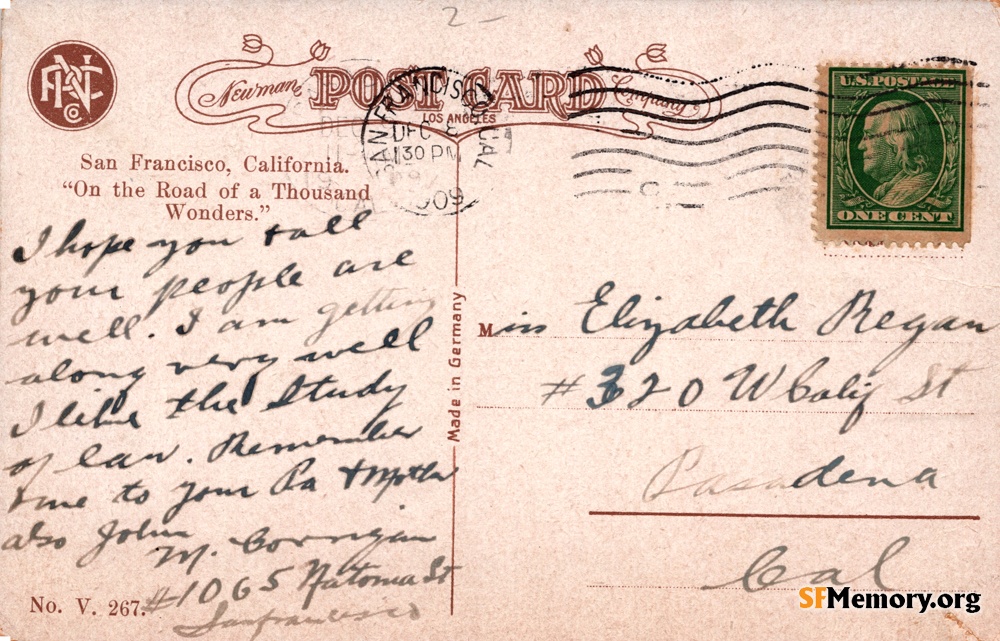 2-
Newman POST CARD Company
LOS ANGELES
SAN FRANCISCO, CAL
DEC 8
130 PM
1909
U.S. POSTAGE
ONE CENT
San Francisco, California.
"On the Road of a Thousand
Wonders."
I hope you & all
your people are
well. I am getting
along very well
I like the Study
of law. Remember
me to your Pa & Mother
also John
M. Corrigan
#1065 Natoma St
Sanfrancisco
No. V. 267.
Made in Germany
Miss Elizabeth Regan
#320 W Calif St
Pasadena
Cal
SFMemory.org